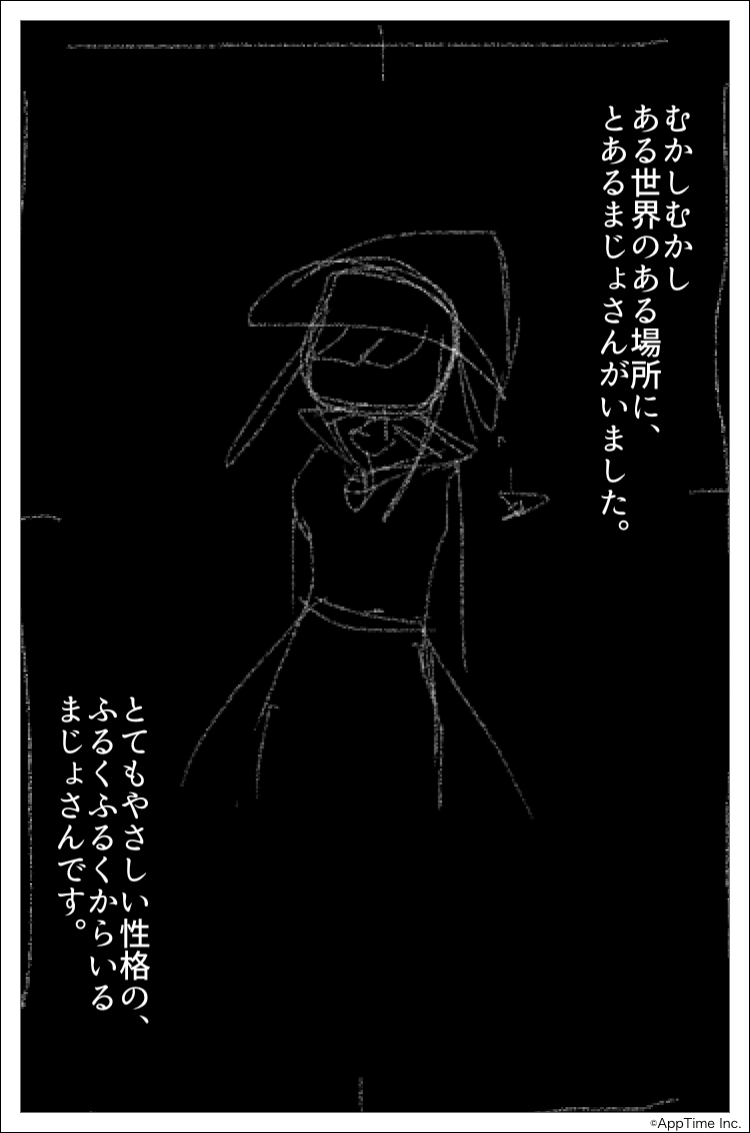 むかしむかし
ある世界のある場所に、
とあるまじょさんがいました。
とてもやさしい性格の、
ふるくふるくからいる
まじょさんです。
©AppTime Inc.